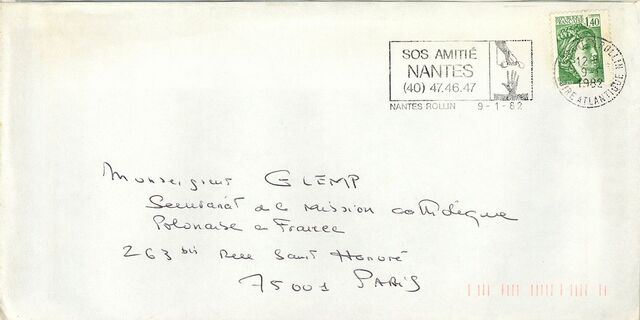 REPUBLIQUE FRANCAISE
1,40
SOS AMITIÉ
NANTES
(40) 47.46.47
NANTES ROLLIN 9-1-82
ROLLIN
12 H
9-1
1982
LOIRE ATLANTIQUE
Monseigneur GLEMP
Secrétariat de la Mission catholique
Polonaise en France
263 bis Rue Saint Honoré
75001 PARIS